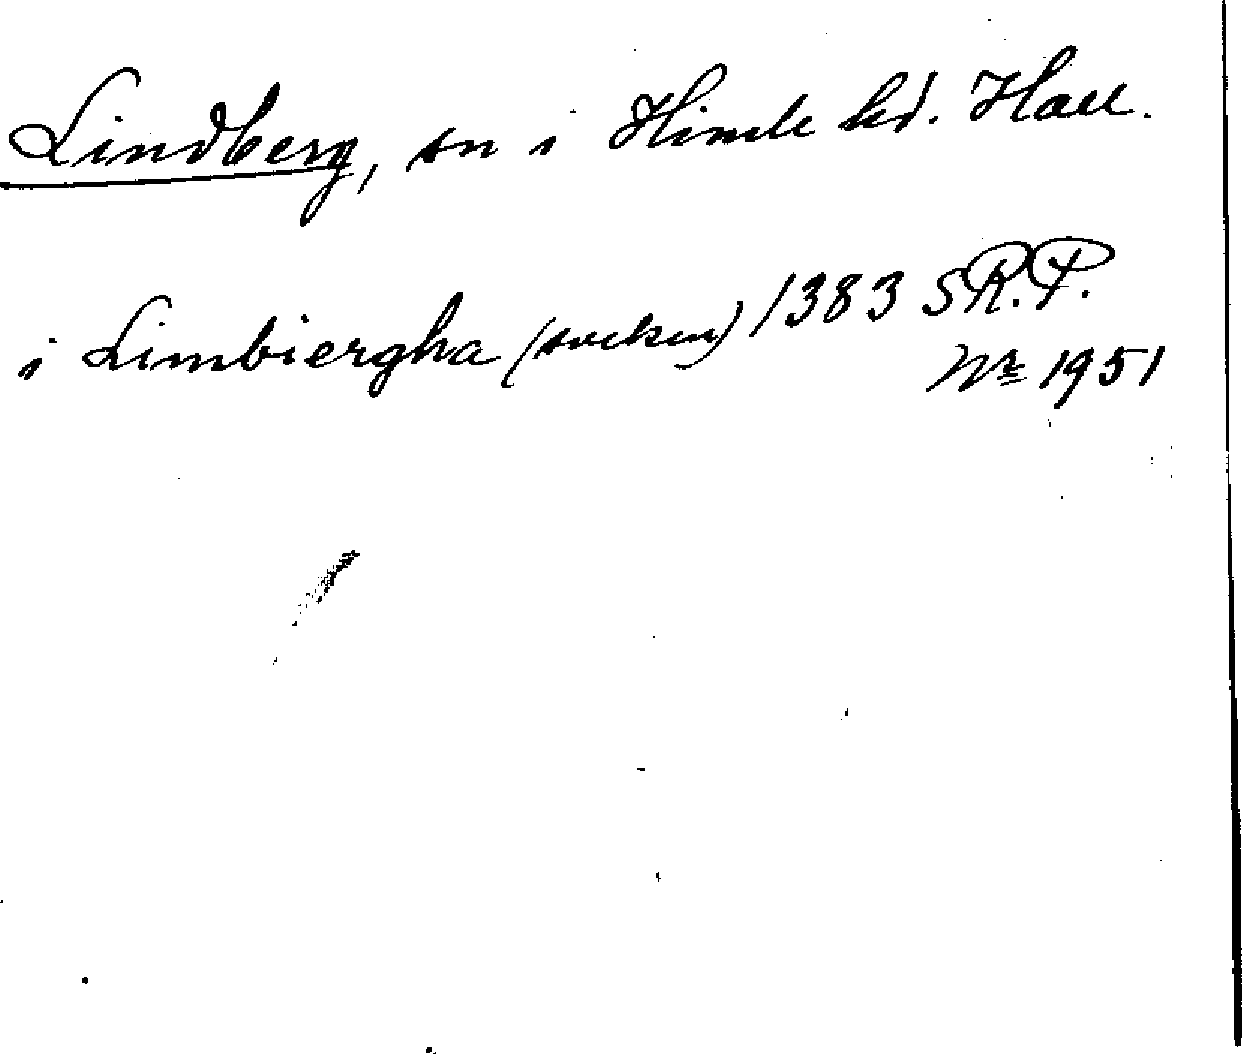 Lindberg, sn i Himle hd. Hall.
i Limbiergha (socken) 1383 SR.P.
Nr 1951